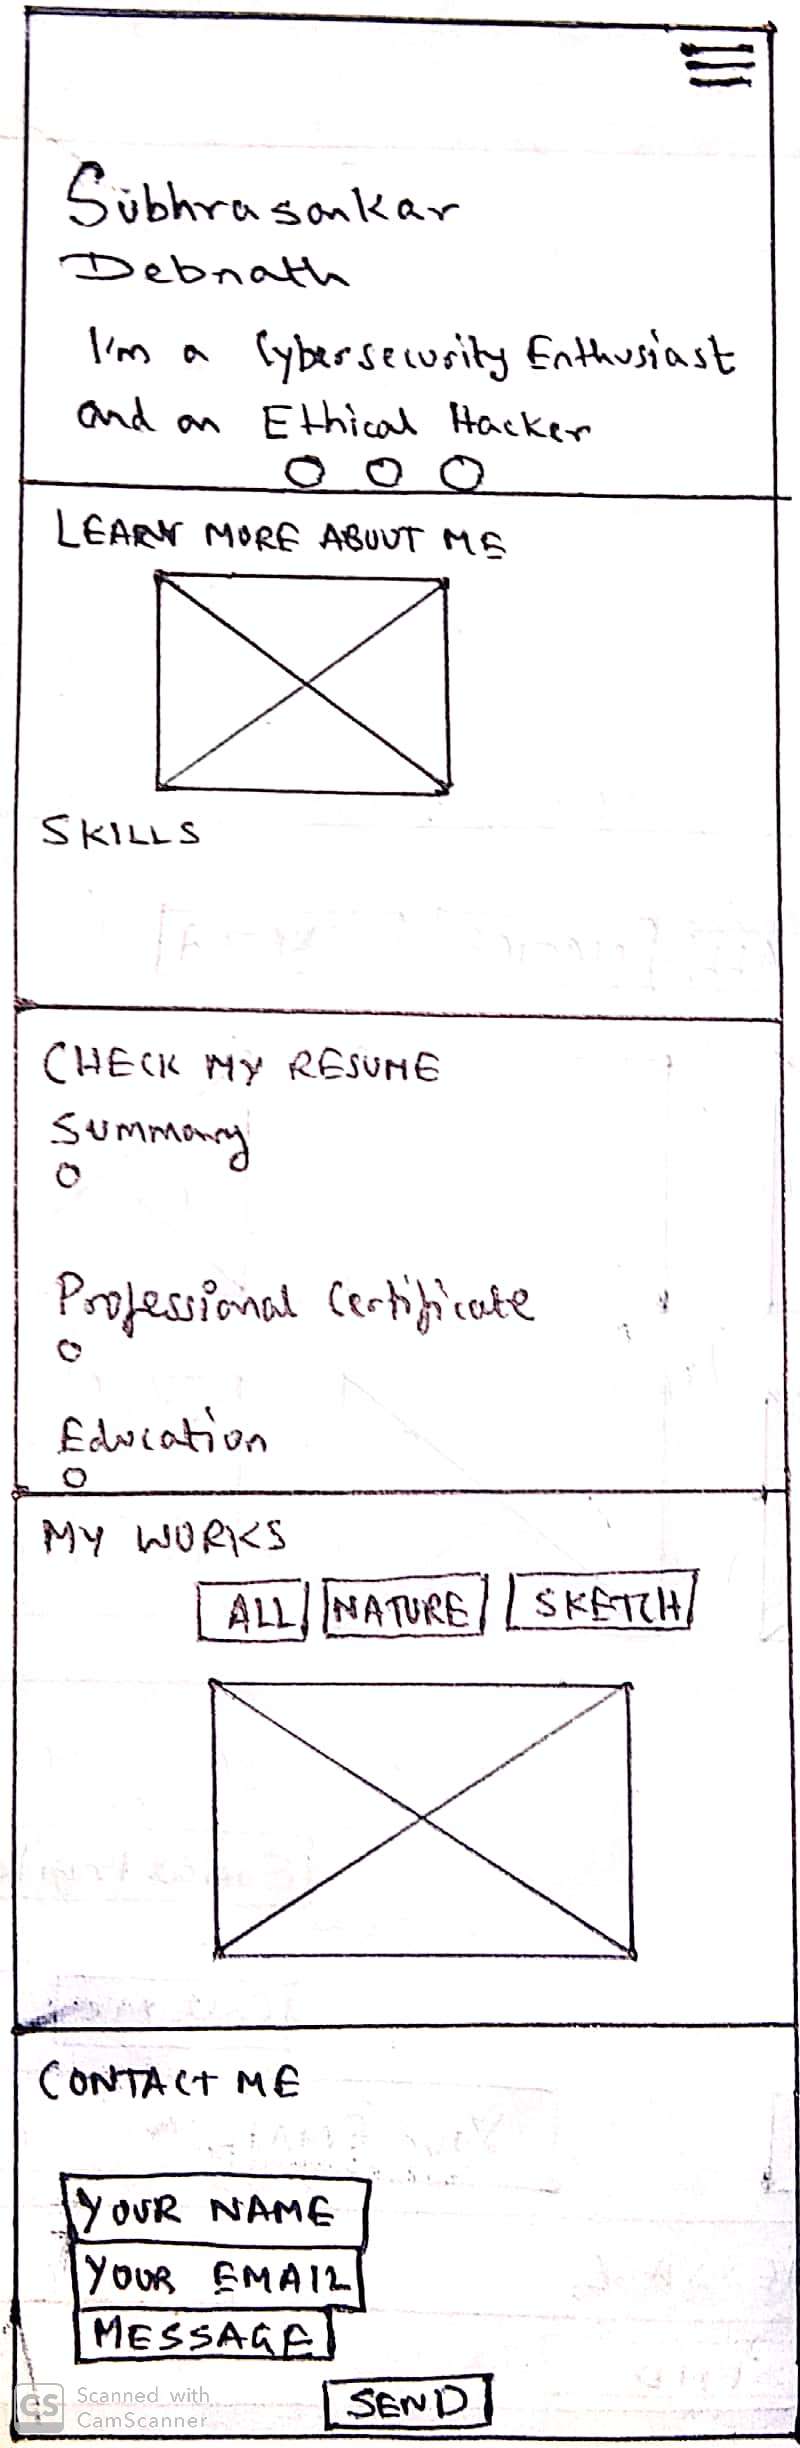 Subhrasankar
Debnath
I'm a Cybersecurity Enthusiast
and an Ethical Hacker
LEARN MORE ABOUT ME
SKILLS
CHECK MY RESUME
Summary
Professional Certificate
Education
MY WORKS
ALL NATURE SKETCH
CONTACT ME
YOUR NAME
YOUR EMAIL
MESSAGE
SEND
CS Scanned with
CamScanner